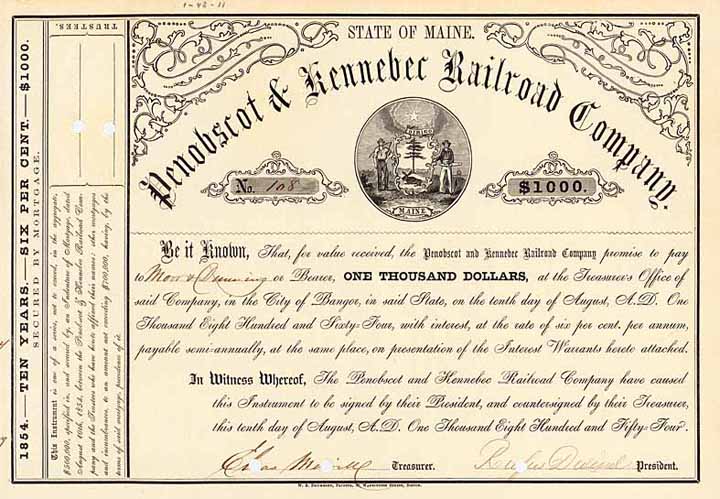 1-42-11
STATE OF MAINE.
Penobscot & Kennebec Railroad Company.
No. 108
DIRIGO
MAINE
$1000.
Be it Known, That, for value received, the Penobscot and Kennebec Railroad Company promise to pay
to or Bearer, ONE THOUSAND DOLLARS, at the Treasurer's Office of
said Company, in the City of Bangor, in said State, on the tenth day of August, A.D. One
Thousand Eight Hundred and Sixty-Four, with interest, at the rate of six per cent. per annum,
payable semi-annually, at the same place, on presentation of the Interest Warrants hereto attached.
In Witness Whereof, The Penobscot and Kennebec Railroad Company have caused
this Instrument to be signed by their President, and countersigned by their Treasurer,
this tenth day of August, A.D. One Thousand Eight Hundred and Fifty-Four.
Treasurer. President.
1854.—TEN YEARS.—SIX PER CENT.—$1000.
SECURED BY MORTGAGE.
This Instrument is one of a series, not to exceed, in the aggregate,
$500,000, specified in, and secured by, an Indenture of Mortgage, dated
August 10th, 1854, between the Penobscot & Kennebec Railroad Com-
pany and the Trustees who have hereto affixed their names; other mortgages
and incumbrances, to an amount not exceeding $700,000, having, by the
terms of said mortgage, precedence of it.
TRUSTEES.